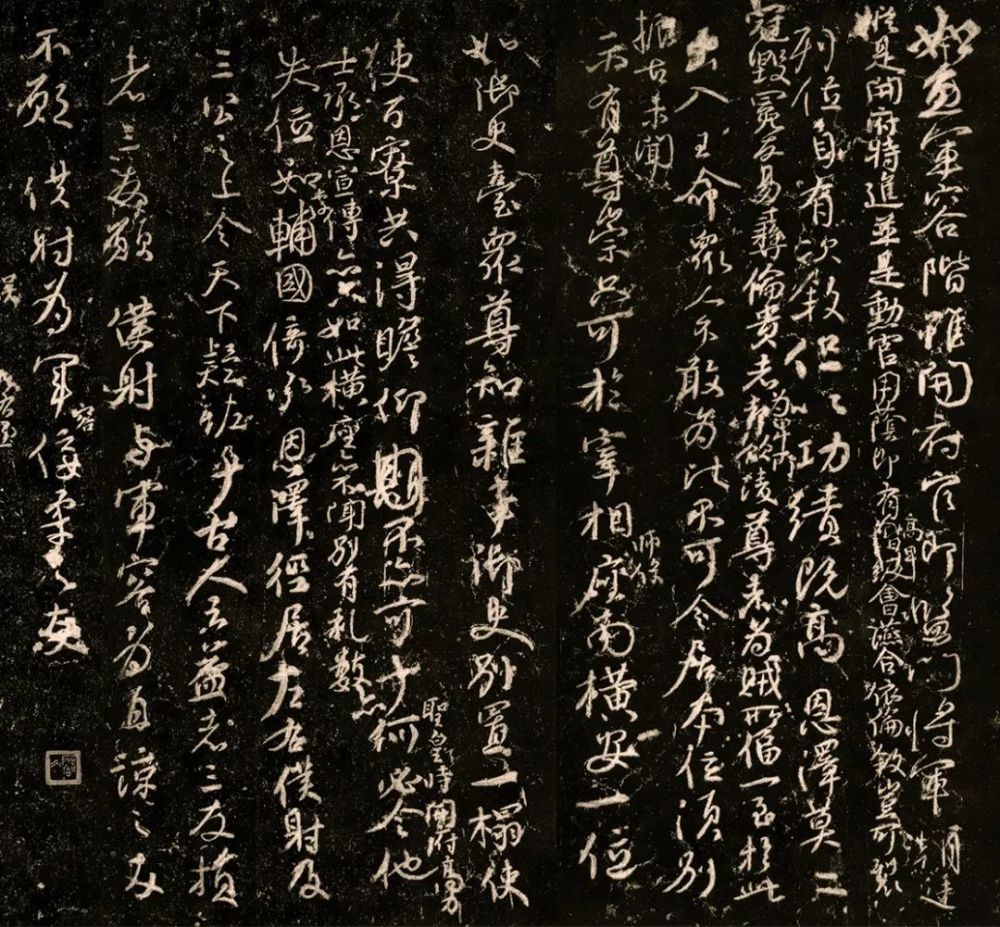 如魚軍容階雖開府官即監門將軍朝廷
縱是開府特進並是勳官用蔭即有高卑會讌合依倫敘豈可裂
列位自有次敘但以功績既高恩澤莫二
冠毀冕反易彝倫貴者為卑所凌尊者為賊所偪一至於此
出入王命眾人不敢為比不可令居本位須別
振古未聞
示有尊崇只可於宰相師保座南橫安一位
如御史臺眾尊知雜事御史別置一榻使
使百寮共得瞻仰不亦可乎何必令他
聖皇時開府高力
士承恩宣傳亦只如此橫座亦不聞別有禮數亦
失位如李輔國倚承恩澤徑居左右僕射及
三公之上令天下疑怪乎古人云益者三友損
者三友願僕射與軍容為直諒之友
不願僕射為軍容佞柔之友